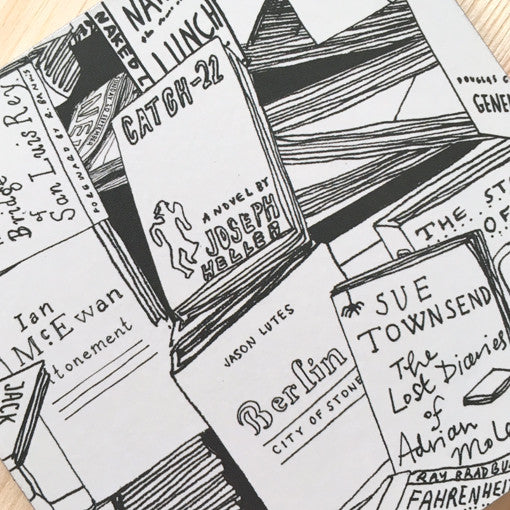 NAKED L
NA
LUNCH
CATCH-22
A NOVEL BY
JOSEPH
HELLER
DOUGLAS C
GENE
Bridge
of
San Luis Rey
Ian
McEwan
tonement
JACK
JASON LUTES
Berlin
CITY OF STONE
THE ST
OF
SUE
TOWNSEND
The
Lost Diaries
of
Adrian
Mole
RAY BRADBU
FAHRENHEIT